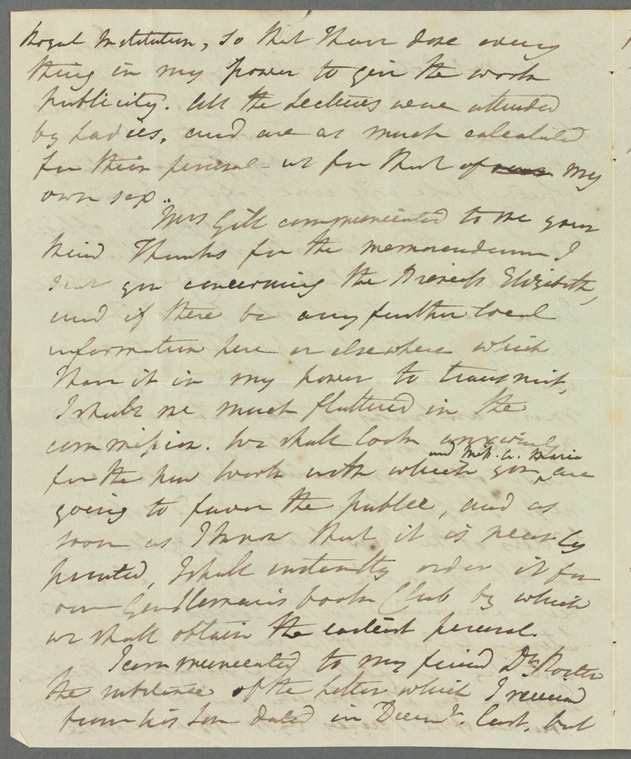 Royal Institution, so that I have done every
thing in my power to give the work
publicity. All the Lectures were attended
by Ladies, and are as much calculated
for their perusal as for that of my
own sex.
Mrs Gill communicated to me your
kind Thanks for the memorandum I
sent you concerning the Princess Elizabeth,
and if there be any further local
information here or elsewhere which
I have it in my power to transmit,
I shall be much flattered in the
commission. We shall look anxiously
for the new work with which you and Miss A. Maria are
going to favor the public, and as
soon as I know that it is nearly
printed, I shall instantly order it for
our Gentleman's book Club by which
we shall obtain the earliest perusal.
I communicated to my friend Dr Porter
the substance of the letter which I received
from his Son dated in Decemr. last, but